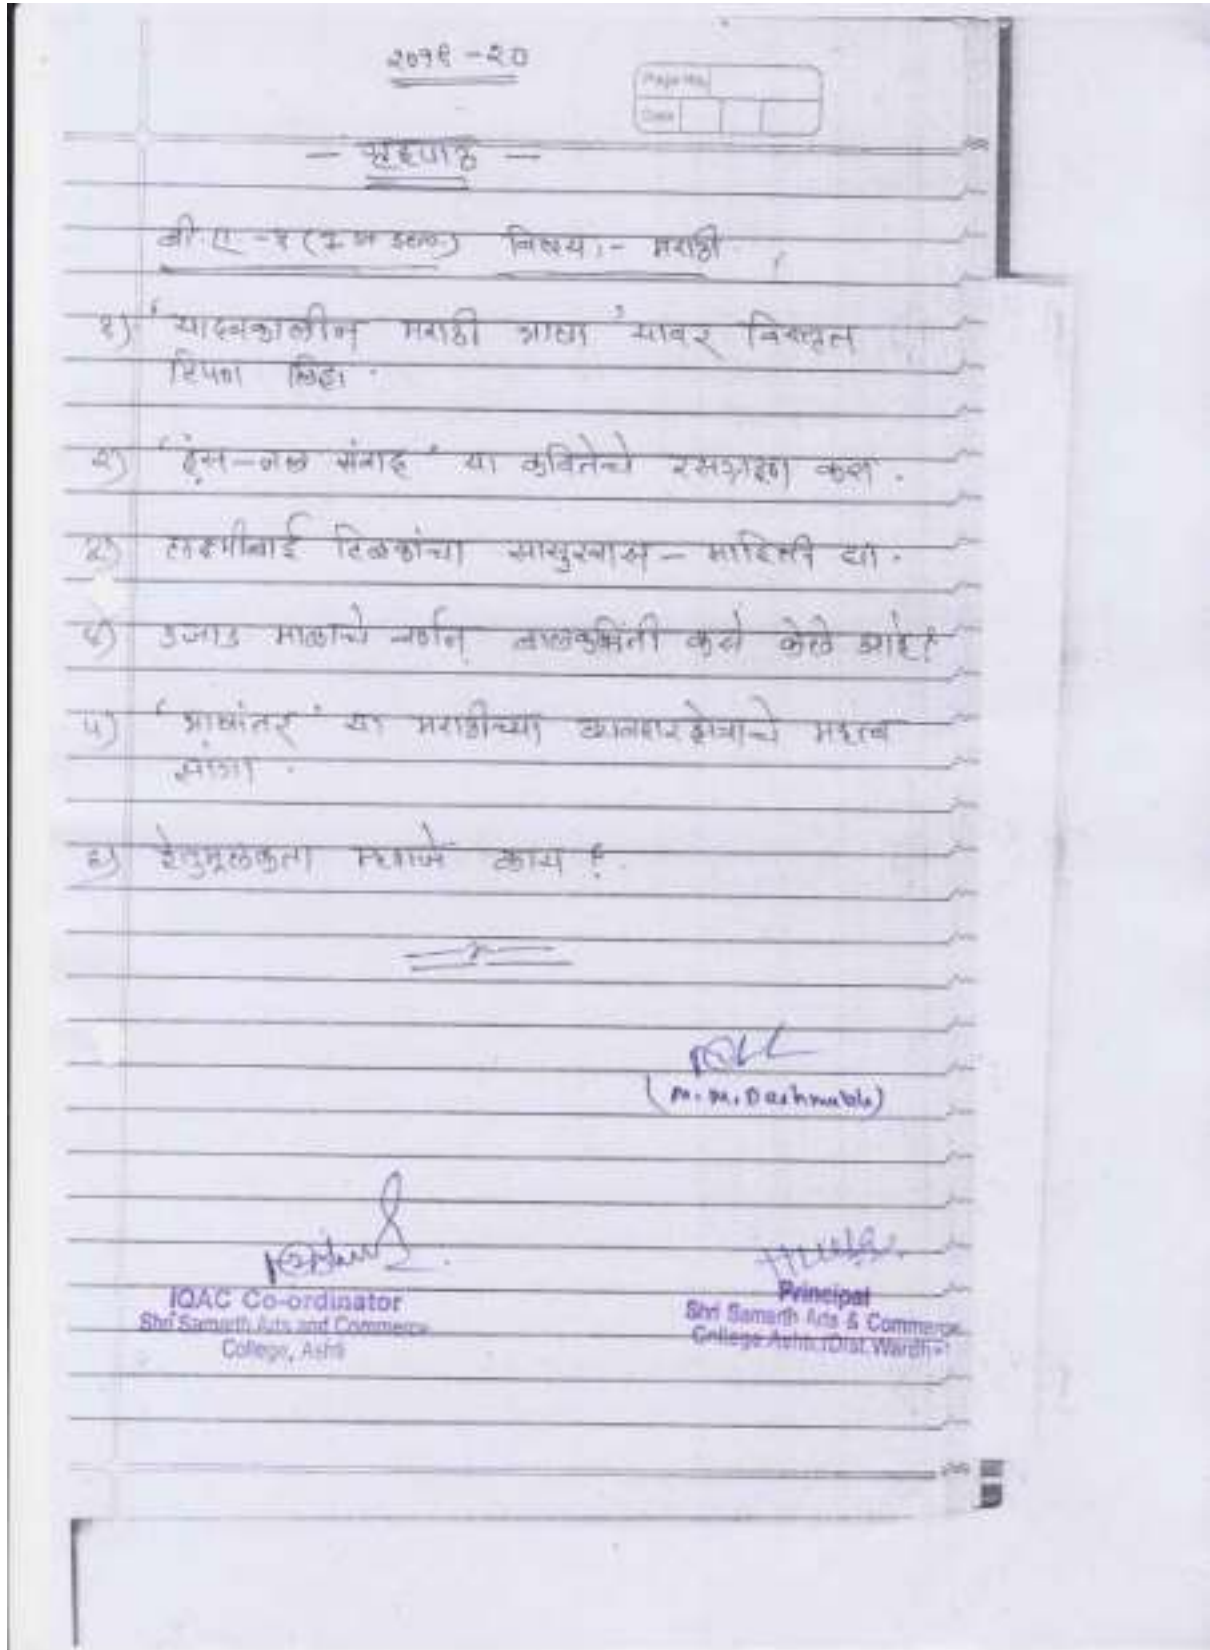 २०१९ - २०
Page No.
Date
- गृहपाठ -
बी.ए. - १ ( ) विषय :- मराठी
१) 'यादवकालीन मराठी भाषा' यावर विस्तृत
टिपण लिहा.
२) 'हंस-नल संवाद' या कवितेचे रसग्रहण करा.
३) लक्ष्मीबाई टिळकांचा सासुरवास - माहिती द्या.
४) उजाड माळाचे वर्णन बालकवींनी कसे केले आहे?
५) 'भाषांतर' या मराठीच्या व्यवहारक्षेत्राचे महत्व
सांगा.
६) हेतुमूलकता म्हणजे काय?
(M. M. Deshmukh)
IQAC Co-ordinator
Shri Samarth Arts and Commerce
College, Ashti
Principal
Shri Samarth Arts & Commerce
College Ashti (Dist. Wardha)